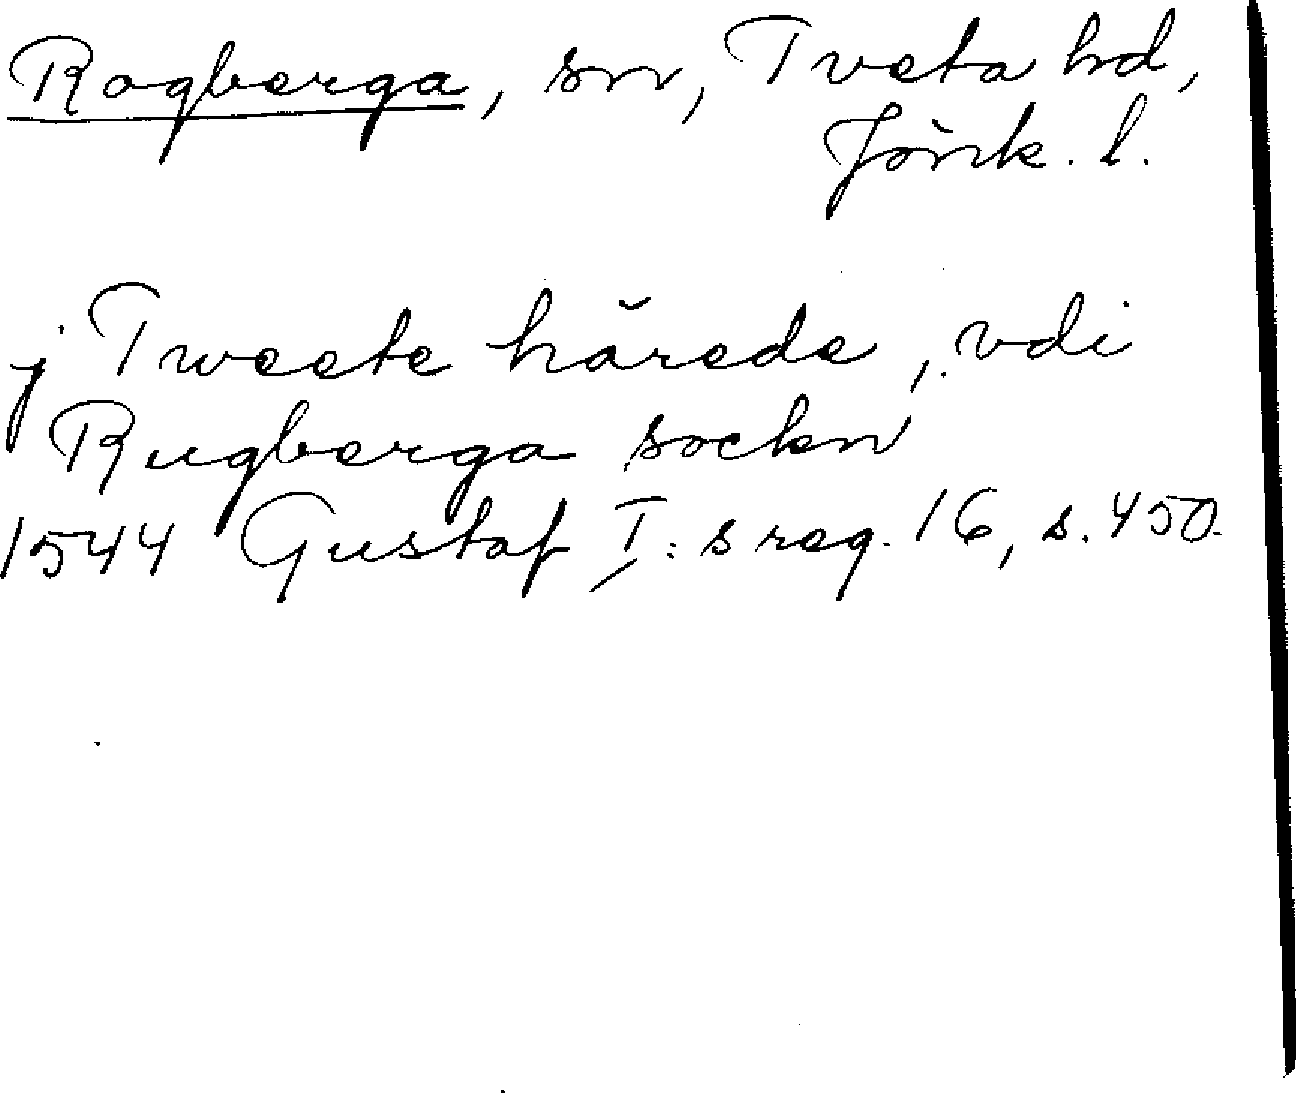 Rogberga, sn, Tveta hd,
Jönk. l.
j Tweete härede, vdi
Rugberga sockn
1544 Gustaf I:s reg. 16, s. 450.